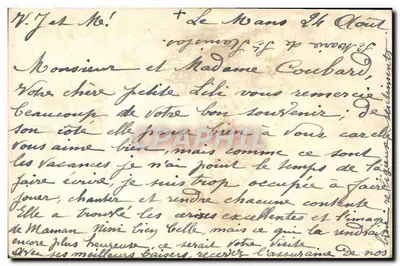 V. J et M.! + Le Mans 24 Août
Monsieur et Madame Coubard,
Votre chère petite Lili vous remercie
beaucoup de votre bon souvenir ; de
son côté elle pense bien à vous car elle
vous aime bien, mais comme ce sont
les vacances je n'ai point le temps de la
faire écrire, je suis trop occupée à faire
jouer, chanter et rendre chacune contente
Elle a trouvé les cerises excellentes et l'image
de Maman Nini très belle, mais ce qui la rendrait
encore plus heureuse, ce serait votre visite
Avec ses meilleurs baisers, recevez l'assurance de nos
religieux sentiments
Sr Marie de St Stanislas